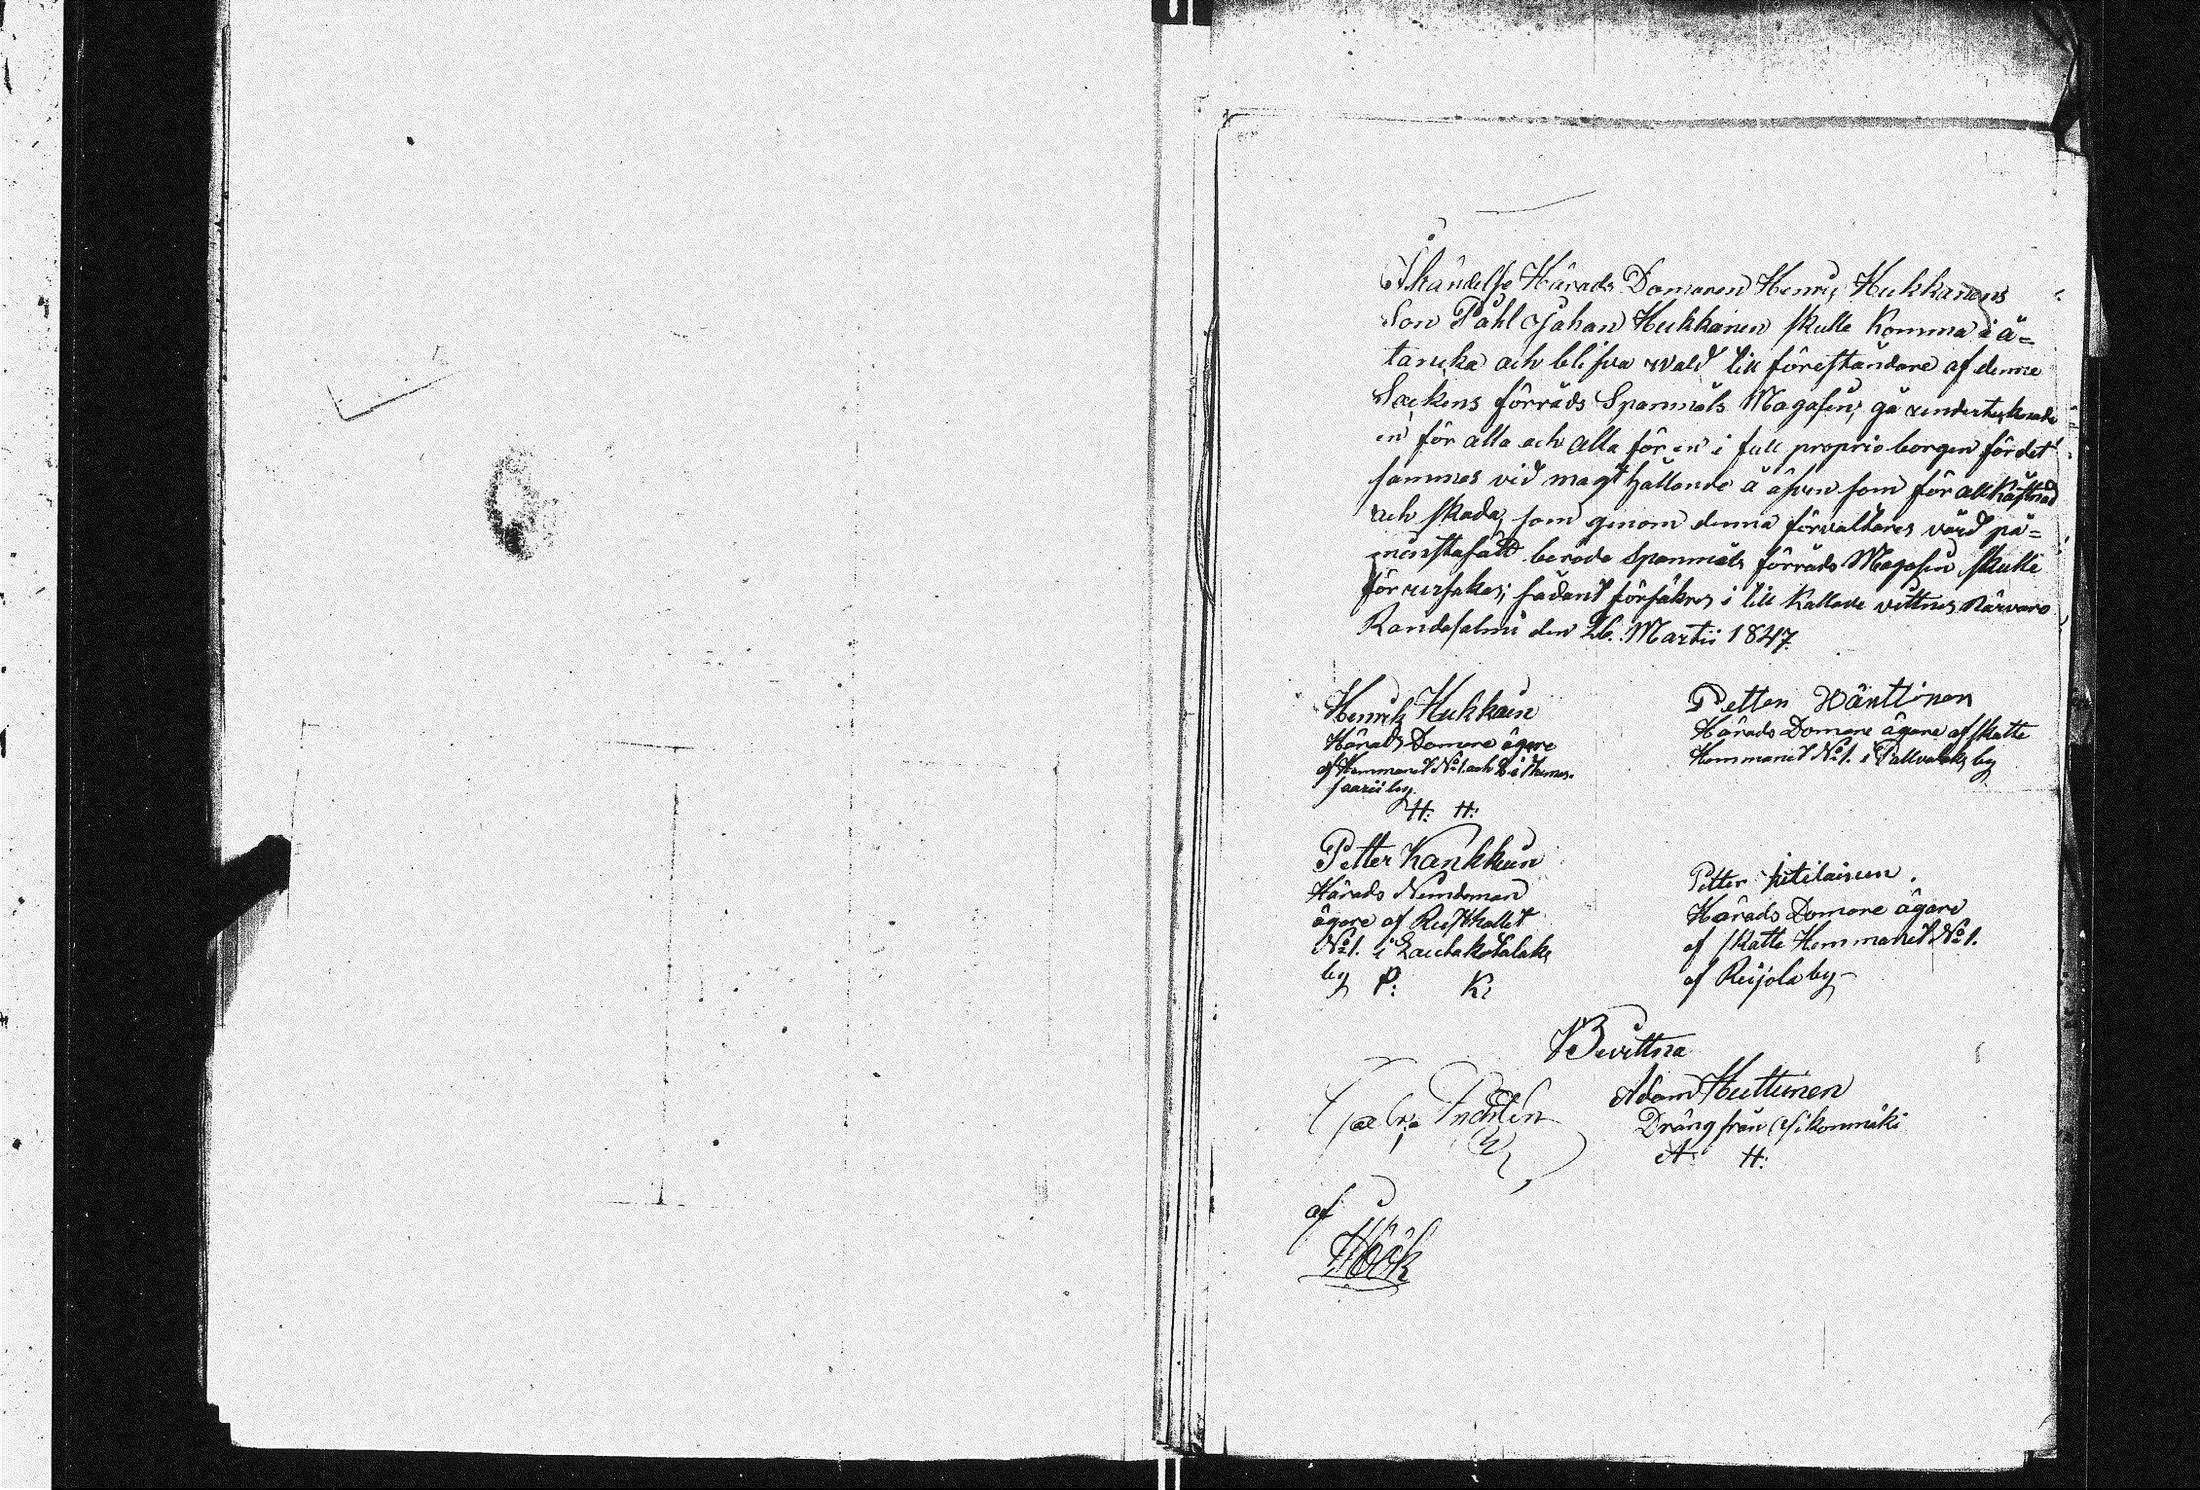 I händelse Härads Domaren Henric Hukkanens
Son Påhl Johan Hukkanen skulle komma i å=
tancka och blifva wald till föreståndare af denne
Sockens förråds Spanmåls Magasin, gå undertecknade
en för alla och alla för en i full proprie borgen för det
sammas vid magt hållande å äfven som för all kåstnad
och skada, som genom denna förvaltares vård på=
minsta sätt berörde Spanmåls förråds Magasin skulle
förorsakas; sådant försäkras i till kallade vittnes närvaro
Randasalmi den 26. Martii 1847.
Henrik Hukkain
Härads Domare ägare
af Hemmanet No 1. och 2 i
saari by.
H: H:
Petter Hänttinen
Härads Domare ägare af skatte
Hemmanet No 1. i Pallvalaks by
Petter Kankkuin
Härads Nemdeman
ägare af Rusthollet
No 1. i Lautakotalaks
by P: K:
Petter
Härads Domare ägare
af skatte Hemmanet No 1.
af Reijola by
Bevittna
Adam Huttunen
Dräng från
A: H:
af
Höök